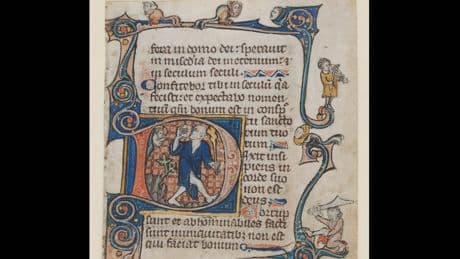 fera in domo dei: speraui
in misedia dei meternum: &
in seculum seculi
Confitebor tibi in seculum qa
fecisti: et expectabo nomen
tuum qm bonum est in consp
tu sancto
rum tuo
rum
Dixit insi
piens in
corde suo
non est
deus: Corrup
sunt et abhominabiles facti
sunt iniquitatibus non est
qui faciat bonum